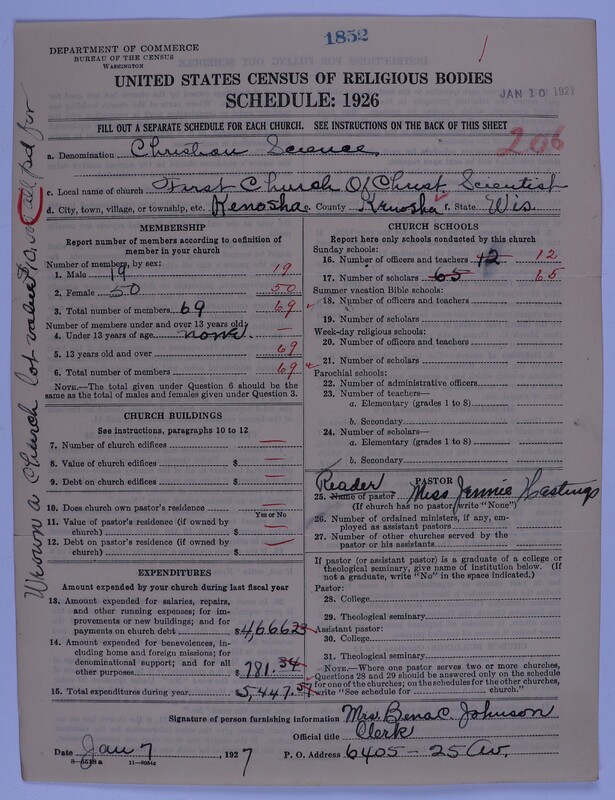 1852
DEPARTMENT OF COMMERCE
BUREAU OF THE CENSUS
WASHINGTON
UNITED STATES CENSUS OF RELIGIOUS BODIES
SCHEDULE: 1926
JAN 10 1927
FILL OUT A SEPARATE SCHEDULE FOR EACH CHURCH. SEE INSTRUCTIONS ON THE BACK OF THIS SHEET
206
a. Denomination Christian Science
c. Local name of church First Church Of Christ Scientist
d. City, town, village, or township, etc. Kenosha e. County Kenosha f. State Wis.
MEMBERSHIP
Report number of members according to definition of member in your church
Number of members, by sex:
1. Male 19 19
2. Female 50 50
3. Total number of members 69 69
Number of members under and over 13 years old:
4. Under 13 years of age none —
5. 13 years old and over 69
6. Total number of members 69
NOTE.—The total given under Question 6 should be
the same as total of males and females given under Question 3.
CHURCH BUILDINGS
See instructions, paragraphs 10 to 12
7. Number of church edifices —
8. Value of church edifices $ —
9. Debt on church edifices $ —
10. Does church own pastor's residence —
Yes or No
11. Value of pastor's residence (if owned by
church) $ —
12. Debt on pastor's residence (if owned by
church) $ —
EXPENDITURES
Amount expended by your church during last fiscal year
13. Amount expended for salaries, repairs,
and other running expenses; for im-
provements or new buildings; and for
payments on church debt $4,666.23
14. Amount expended for benevolences, in-
cluding home and foreign missions; for
denominational support; and for all
other purposes $781.34
15. Total expenditures during year $5,447.57
CHURCH SCHOOLS
Report here only schools conducted by this church
Sunday schools:
16. Number of officers and teachers 12 12
17. Number of scholars 65 65
Summer vacation Bible schools:
18. Number of officers and teachers
19. Number of scholars
Week-day religious schools:
20. Number of officers and teachers
21. Number of scholars
Parochial schools:
22. Number of administrative officers
23. Number of teachers—
a. Elementary (grades 1 to 8)
b. Secondary
24. Number of scholars—
a. Elementary (grades 1 to 8)
b. Secondary
PASTOR
Reader
25. Name of pastor Miss Jennie Hastings
(If church has no pastor, write "None")
26. Number of ordained ministers, if any, em-
ployed as assistant pastors
27. Number of other churches served by the
pastor or his assistants
If pastor (or assistant pastor) is a graduate of a college or
theological seminary, give name of institution below. (If
not a graduate, write "No" in the space indicated.)
Pastor:
28. College
29. Theological seminary
Assistant pastor:
30. College
31. Theological seminary
NOTE.—Where one pastor serves two or more churches,
Questions 28 and 29 should be answered only on the schedule
for one of the churches; on the schedules for the other churches,
write "See schedule for church."
Signature of person furnishing information Mrs. Bena C. Johnson
Official title Clerk
Date Jan 7, 1927 P. O. Address 6405 - 25 Av.
8-5518a 11-9064a
We own a church lot value all paid for